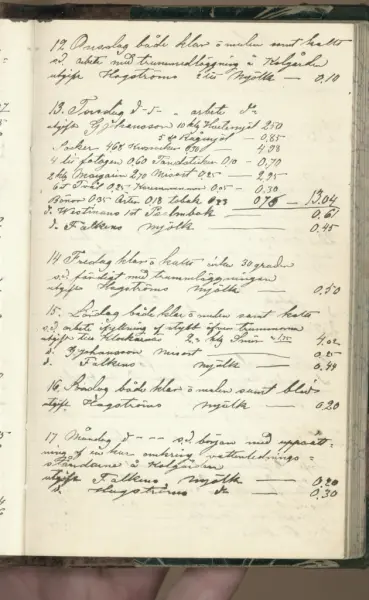 12. Onsdag både klar o mulen samt kallt
s.d. arbete med trummedläggning å Kolgården
utgift Hagströms mjölk — 0,10
13. Torsdag d-s- arbete do
utgift Johansson 10 kg Hvetemjöl 2,50
5 kg Rågmjöl — 0,85
Socker 4,08
4 lit fotogen 0,60 Tändstickor 0,10 — 0,70
2 kg Margarin 2,70 Misost 0,25 — 2,95
6 st 0,25 0,05 — 0,30
Bönor 0,35 Ärter 0,18 tobak 0,23 0,76 — 13.04
d. Westmans 1 st Psalmbok 0,67
d. Falkens mjölk — 0,45
14 Fredag klar o kallt 30 grader
s.d. färdigt med trumläggningen
utgift Hagströms mjölk — 0,50
15. Lördag både klar o mulen samt kallt
s.d. arbete ifyllning af stybb öfver trummorna
utgift 2 kg Smör 4,02
d. Johansson misost — 0,25
d. Falkens mjölk — 0,48
16. Söndag både klar o mulen samt blid
utgift Hagströms mjölk — 0,20
17 Måndag d- - - s.d. början med uppsätt-
ning af en kur omkring vattenlednings-
ståndarne å Kolgården
utgift Falkens mjölk — 0,20
d. Hagströms do — 0,30